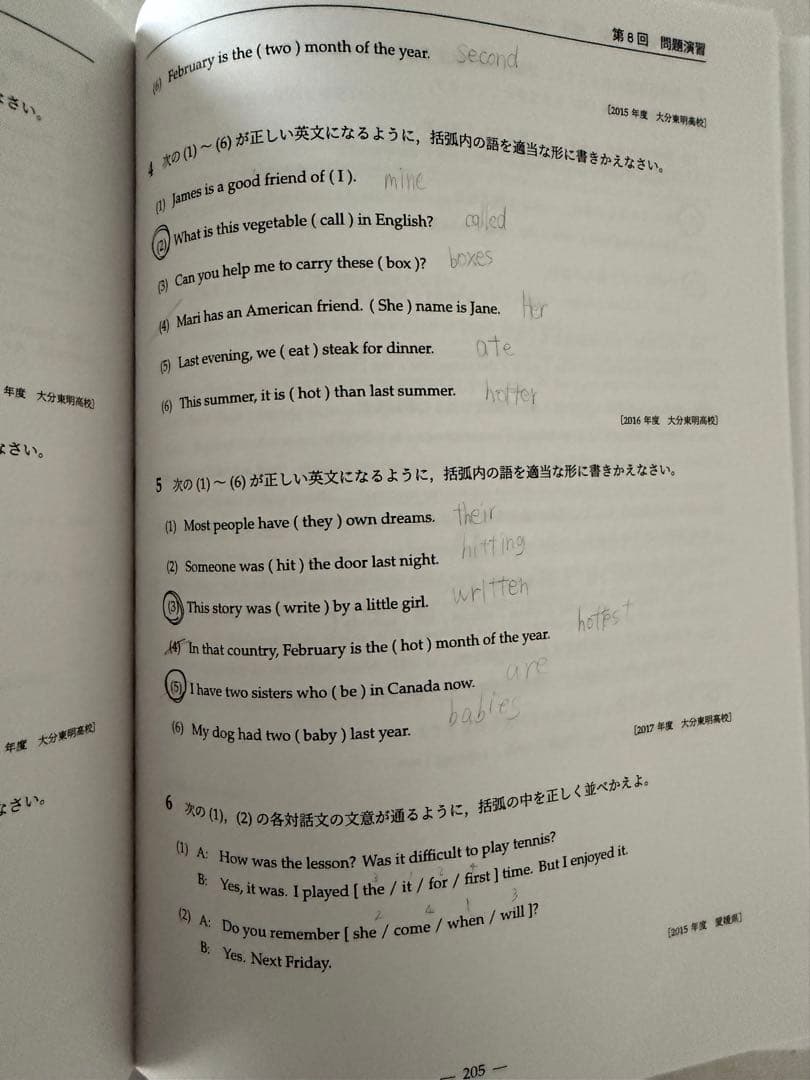 第8回 問題演習
(6) February is the ( two ) month of the year. second
[2015 年度 大分東明高校]
4 次の (1) ~ (6) が正しい英文になるように，括弧内の語を適当な形に書きかえなさい。
(1) James is a good friend of ( I ). mine
(2) What is this vegetable ( call ) in English? called
(3) Can you help me to carry these ( box )? boxes
(4) Mari has an American friend. ( She ) name is Jane. Her
(5) Last evening, we ( eat ) steak for dinner. ate
(6) This summer, it is ( hot ) than last summer. hotter
[2016 年度 大分東明高校]
5 次の (1) ~ (6) が正しい英文になるように，括弧内の語を適当な形に書きかえなさい。
(1) Most people have ( they ) own dreams. their
(2) Someone was ( hit ) the door last night. hitting
(3) This story was ( write ) by a little girl. written
(4) In that country, February is the ( hot ) month of the year. hottest
(5) I have two sisters who ( be ) in Canada now. are
(6) My dog had two ( baby ) last year. babies
[2017 年度 大分東明高校]
6 次の (1)，(2) の各対話文の文意が通るように，括弧の中を正しく並べかえよ。
(1) A: How was the lesson? Was it difficult to play tennis?
3 1 2 4
B: Yes, it was. I played [ the / it / for / first ] time. But I enjoyed it.
2 4 1 3
(2) A: Do you remember [ she / come / when / will ]?
B: Yes. Next Friday.
[2015 年度 愛媛県]
— 205 —
さい。
年度 大分東明高校]
なさい。
年度 大分東明高校]
なさい。